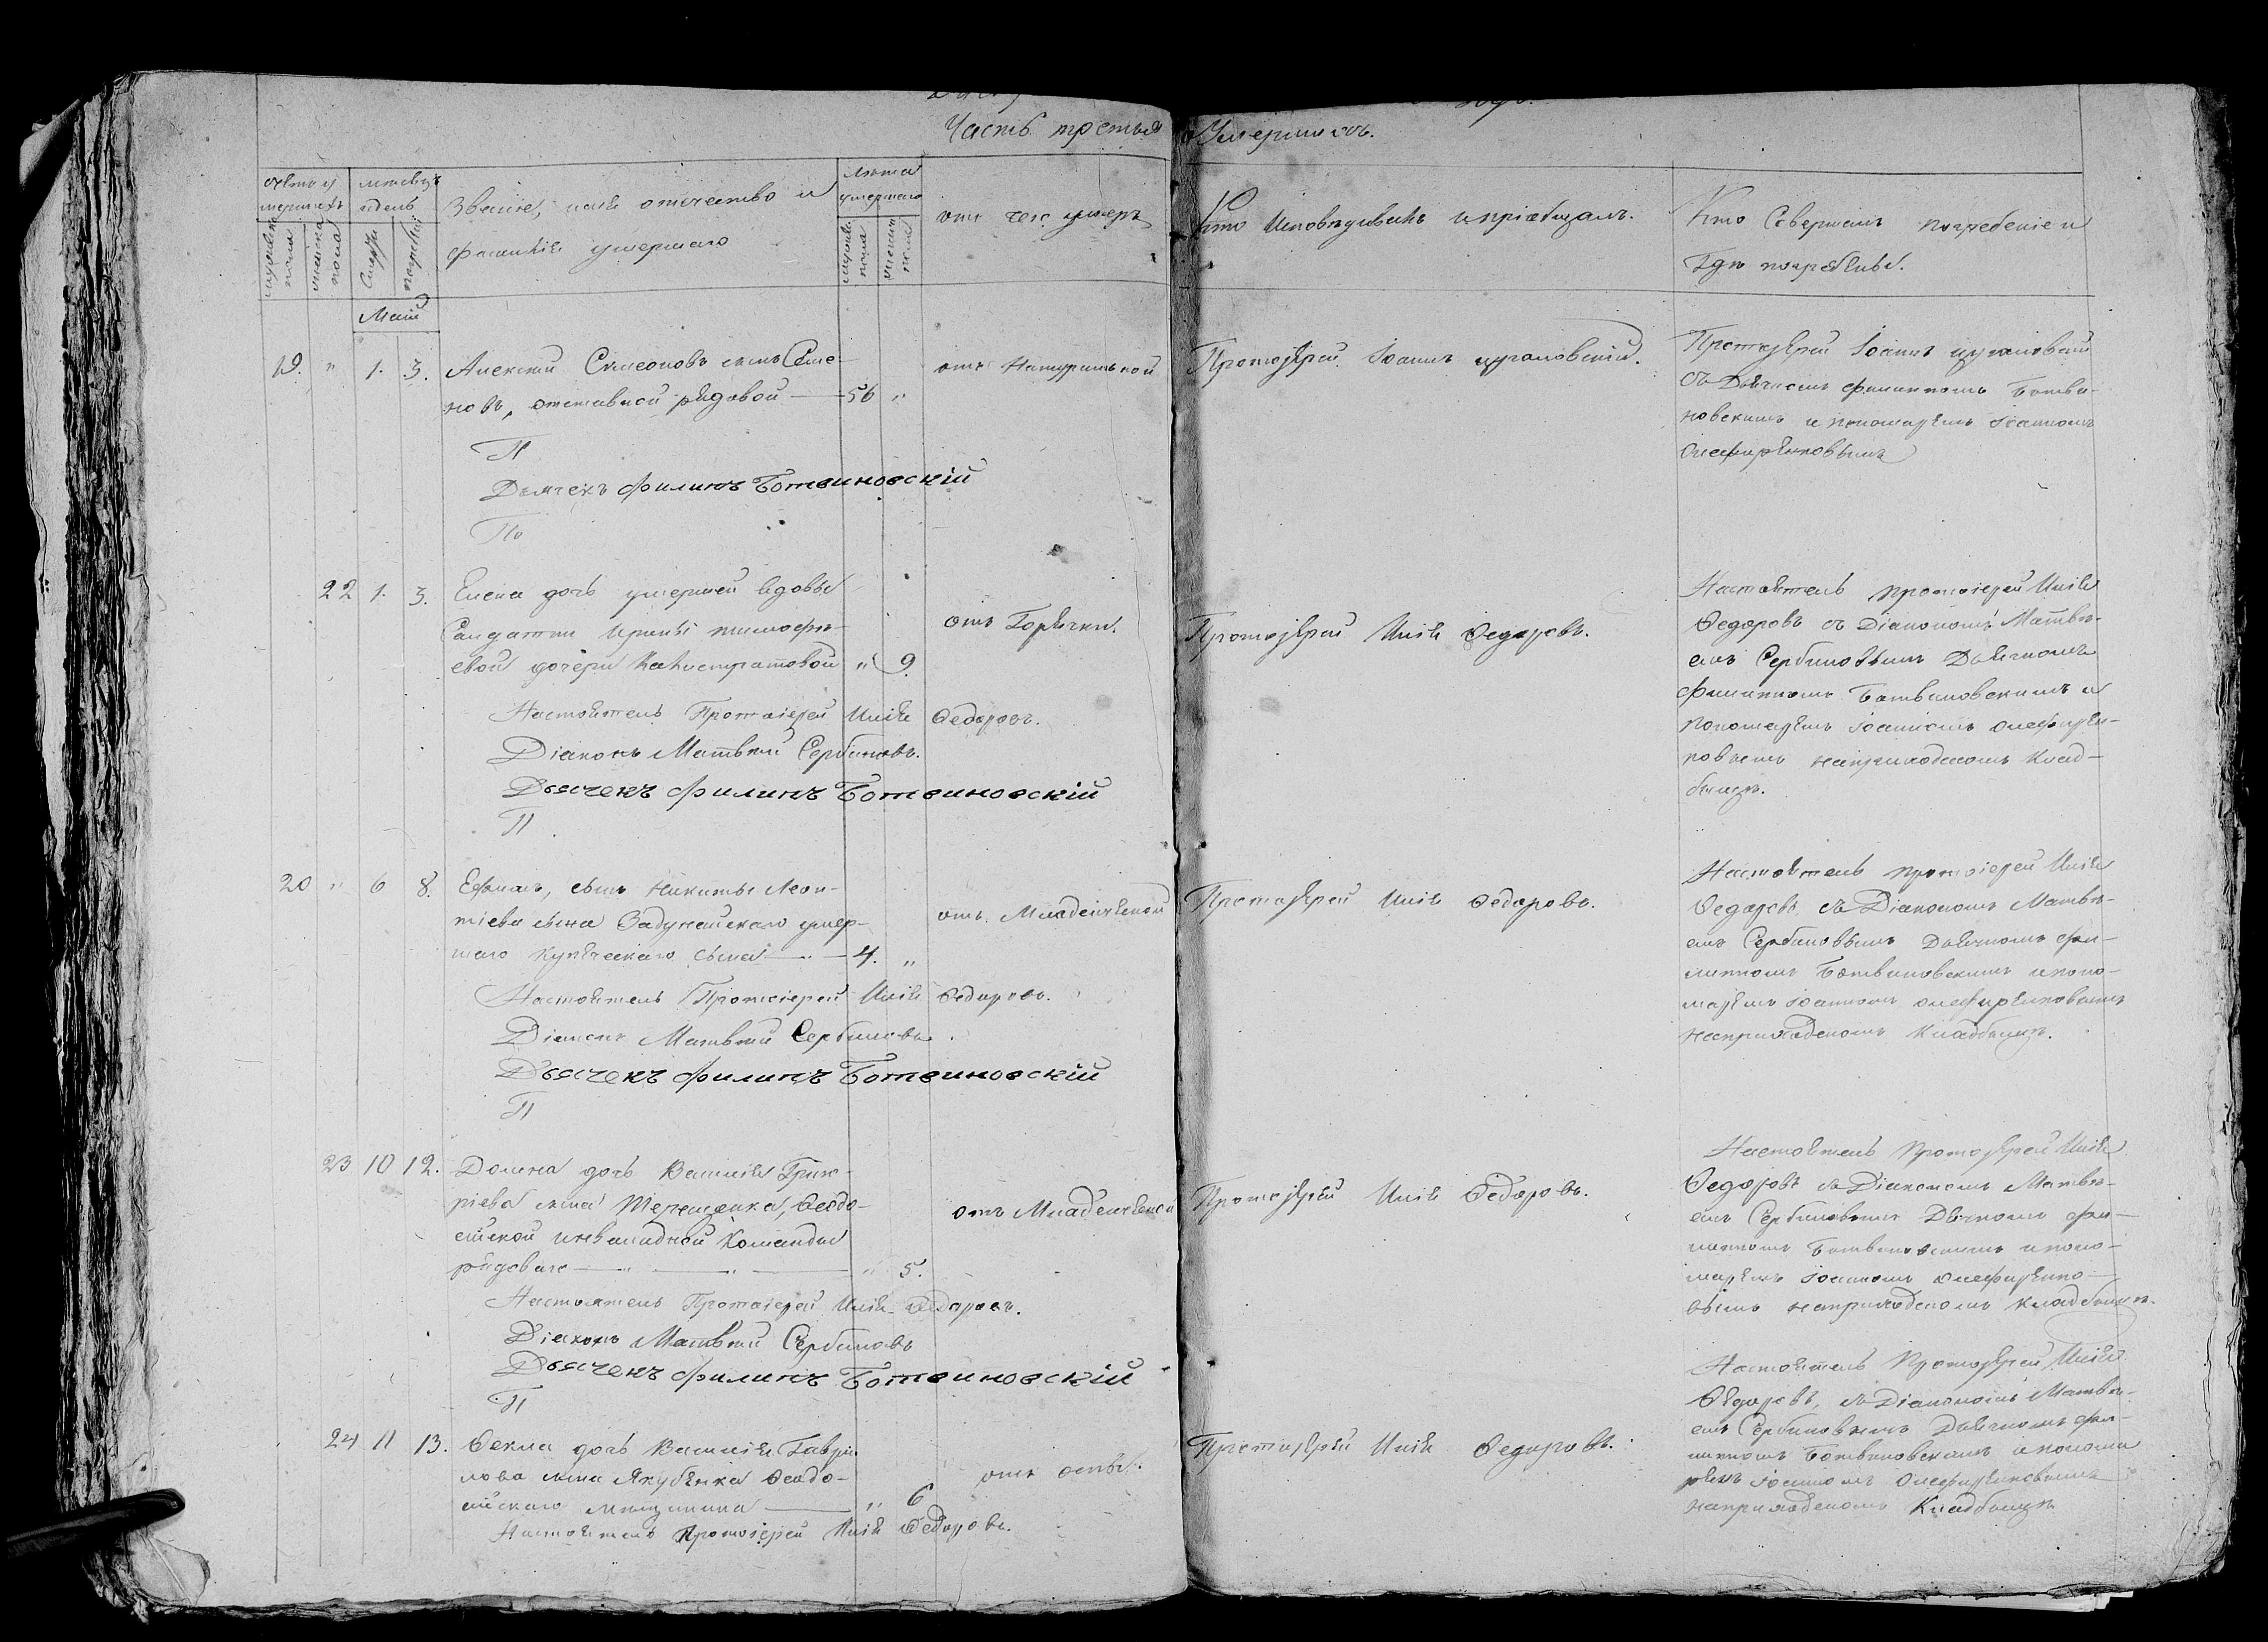 Часть третья о Умершихъ.
счетъ у
мершихъ
мужеска
пола
женска
пола
месяцъ
и день
Смерти
погребенія
Званіе, имя отчество и
фамилія умершаго
лета
умершаго
мужеска
пола
женска
пола
отъ чего умеръ
Кто Исповѣдывалъ и пріобщалъ.
Кто Совершалъ погребеніе и
Гдѣ погребены.
Маія
19. " 1. 3. Алексей Симеоновъ сынъ Семе-
новъ, отставной рядовой — 56 "
отъ Натуральной
Протоіерей Іоаннъ
Протоіерей Іоаннъ
съ Дьячкомъ Филиппомъ Ботви-
новскимъ и пономаремъ Іоанномъ
Олефиренковымъ
П
Дьячекъ Филипъ Ботвиновскій
По
22 1. 3. Елена дочь умершей вдовы
Салдатки Ирины тимофѣ-
евой дочери Калистратовой " 9
отъ Горячки.
Протоіерей Илія Федоровъ.
Настоятель протоіерей Илія
Федоровъ съ Діакономъ Матвѣ-
емъ Сербиновымъ Дьячкомъ
Филиппомъ Ботвиновскимъ и
пономаремъ Іоанномъ Олефирен-
ковымъ наприходскомъ Клад-
бищѣ.
Настоятель Протоіерей Илія Федоровъ.
Діаконъ Матвѣй Сербиновъ.
Дьячекъ Филипъ Ботвиновскій
П
20 " 6 8. Ефимъ, сынъ Никиты Леон-
тіева сына Задунайскаго умер-
шаго купеческаго сына — 4. "
отъ Младенческой
Протоіерей Илія Федоровъ.
Настоятель протоіерей Илія
Федоровъ съ Діакономъ Матвѣ-
емъ Сербиновымъ Дьячкомъ Фи-
липпомъ Ботвиновскимъ и поно-
маремъ Іоанномъ Олефиренковымъ
наприходскомъ Кладбищѣ.
Настоятель Протоіерей Илія Федоровъ.
Діаконъ Матвѣй Сербиновъ.
Дьячекъ Филипъ Ботвиновскій
П
23 10 12. Домна дочь Василія Григо-
ріева сына Терещенка, Феодо-
сійской инвалидной Команды
рядоваго — " — " — " 5.
отъ Младенческой
Протоіерей Илія Федоровъ.
Настоятель Протоіерей Илія
Федоровъ съ Діакономъ Матвѣ-
емъ Сербиновымъ Дьячкомъ Фи-
липпомъ Ботвиновскимъ и поно-
маремъ Іоанномъ Олефиренко-
вымъ наприходскомъ кладбищѣ.
Настоятель Протоіерей Илія Федоровъ.
Діаконъ Матвѣй Сербиновъ
Дьячекъ Филипъ Ботвиновскій
П
24 11 13. Фекла дочь Василія Гаври
лова сына Якубенка Феодо-
сійскаго мещанина — " 6
отъ оспы.
Протоіерей Илія Федоровъ.
Настоятель Протоіерей Илія
Федоровъ, съ Діакономъ Матвѣ-
емъ Сербиновымъ Дьячкомъ Фи-
липпомъ Ботвиновскимъ и понома
ремъ Іоанномъ Олефиренковымъ
наприходскомъ Кладбищѣ
Настоятель Протоіерей Илія Федоровъ.